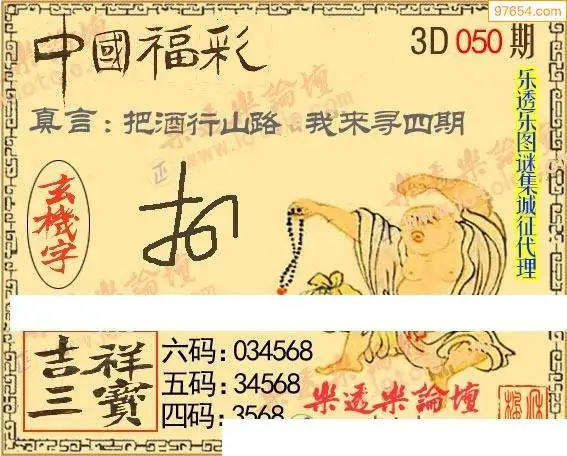 97654.com
中國福彩
3D 050 期
真言：把酒行山路 我来寻四期
乐透乐图谜集城征代理
玄機字
吉祥三寶
六码：034568
五码：34568
四码：3568
樂透樂論壇